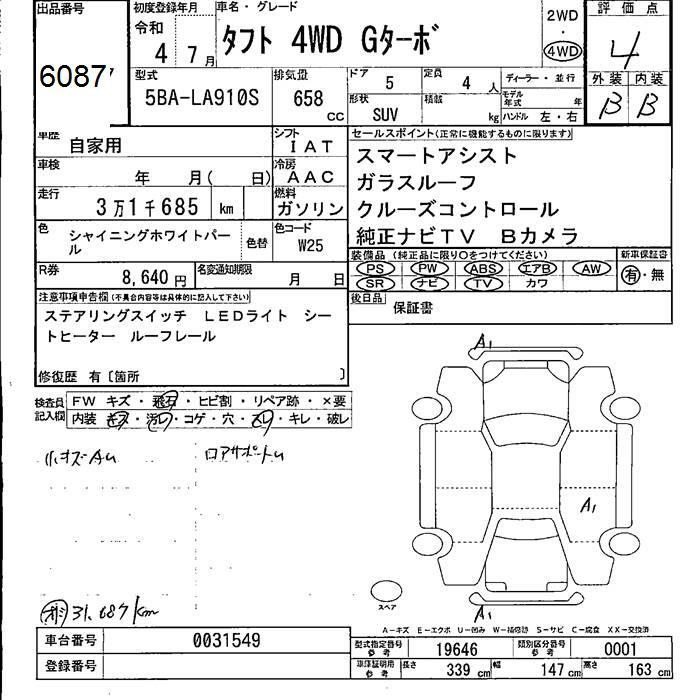 出品番号
6087
初度登録年月
令和
4年 7月
車名・グレード
タフト 4WD Gターボ
2WD
・
4WD
評価点
4
外装 内装
B B
型式
5BA-LA910S
排気量
658 CC
ドア 5
定員 4人
ディーラー・並行
形状 SUV
積載 kg
モデル年式 年
ハンドル 左・右
車歴 自家用
シフト IAT
車検 年 月( 日)
冷房 AAC
走行 3万1千685 km
燃料 ガソリン
色 シャイニングホワイトパール
色替
色コード W25
R券 8,640円
名変通知期限 月 日
セールスポイント(正常に機能するものに限ります)
スマートアシスト
ガラスルーフ
クルーズコントロール
純正ナビTV Bカメラ
装備品 (純正品に限り○をつけてください)
PS PW ABS エアB AW
SR ナビ TV カワ
新車保証書
有・無
後日品 保証書
注意事項申告欄(不具合内容等は具体的に記入して下さい)
ステアリングスイッチ LEDライト シー
トヒーター ルーフレール
修復歴 有〔箇所 〕
検査員記入欄
FW キズ・飛石・ヒビ割・リペア跡・×要
内装 キズ・汚レ・コゲ・穴・スレ・キレ・破レ
小キズAu
ロアサポートu
A1
A1
A1
スペア
31,687km
A-キズ E-エクボ U-凹み W-補修跡 S-サビ C-腐食 XX-交換済
車台番号 0031549
登録番号
型式指定番号 参考 19646
類別区分番号 参考 0001
車庫証明用 参考 長さ 339 cm 幅 147 cm 高さ 163 cm